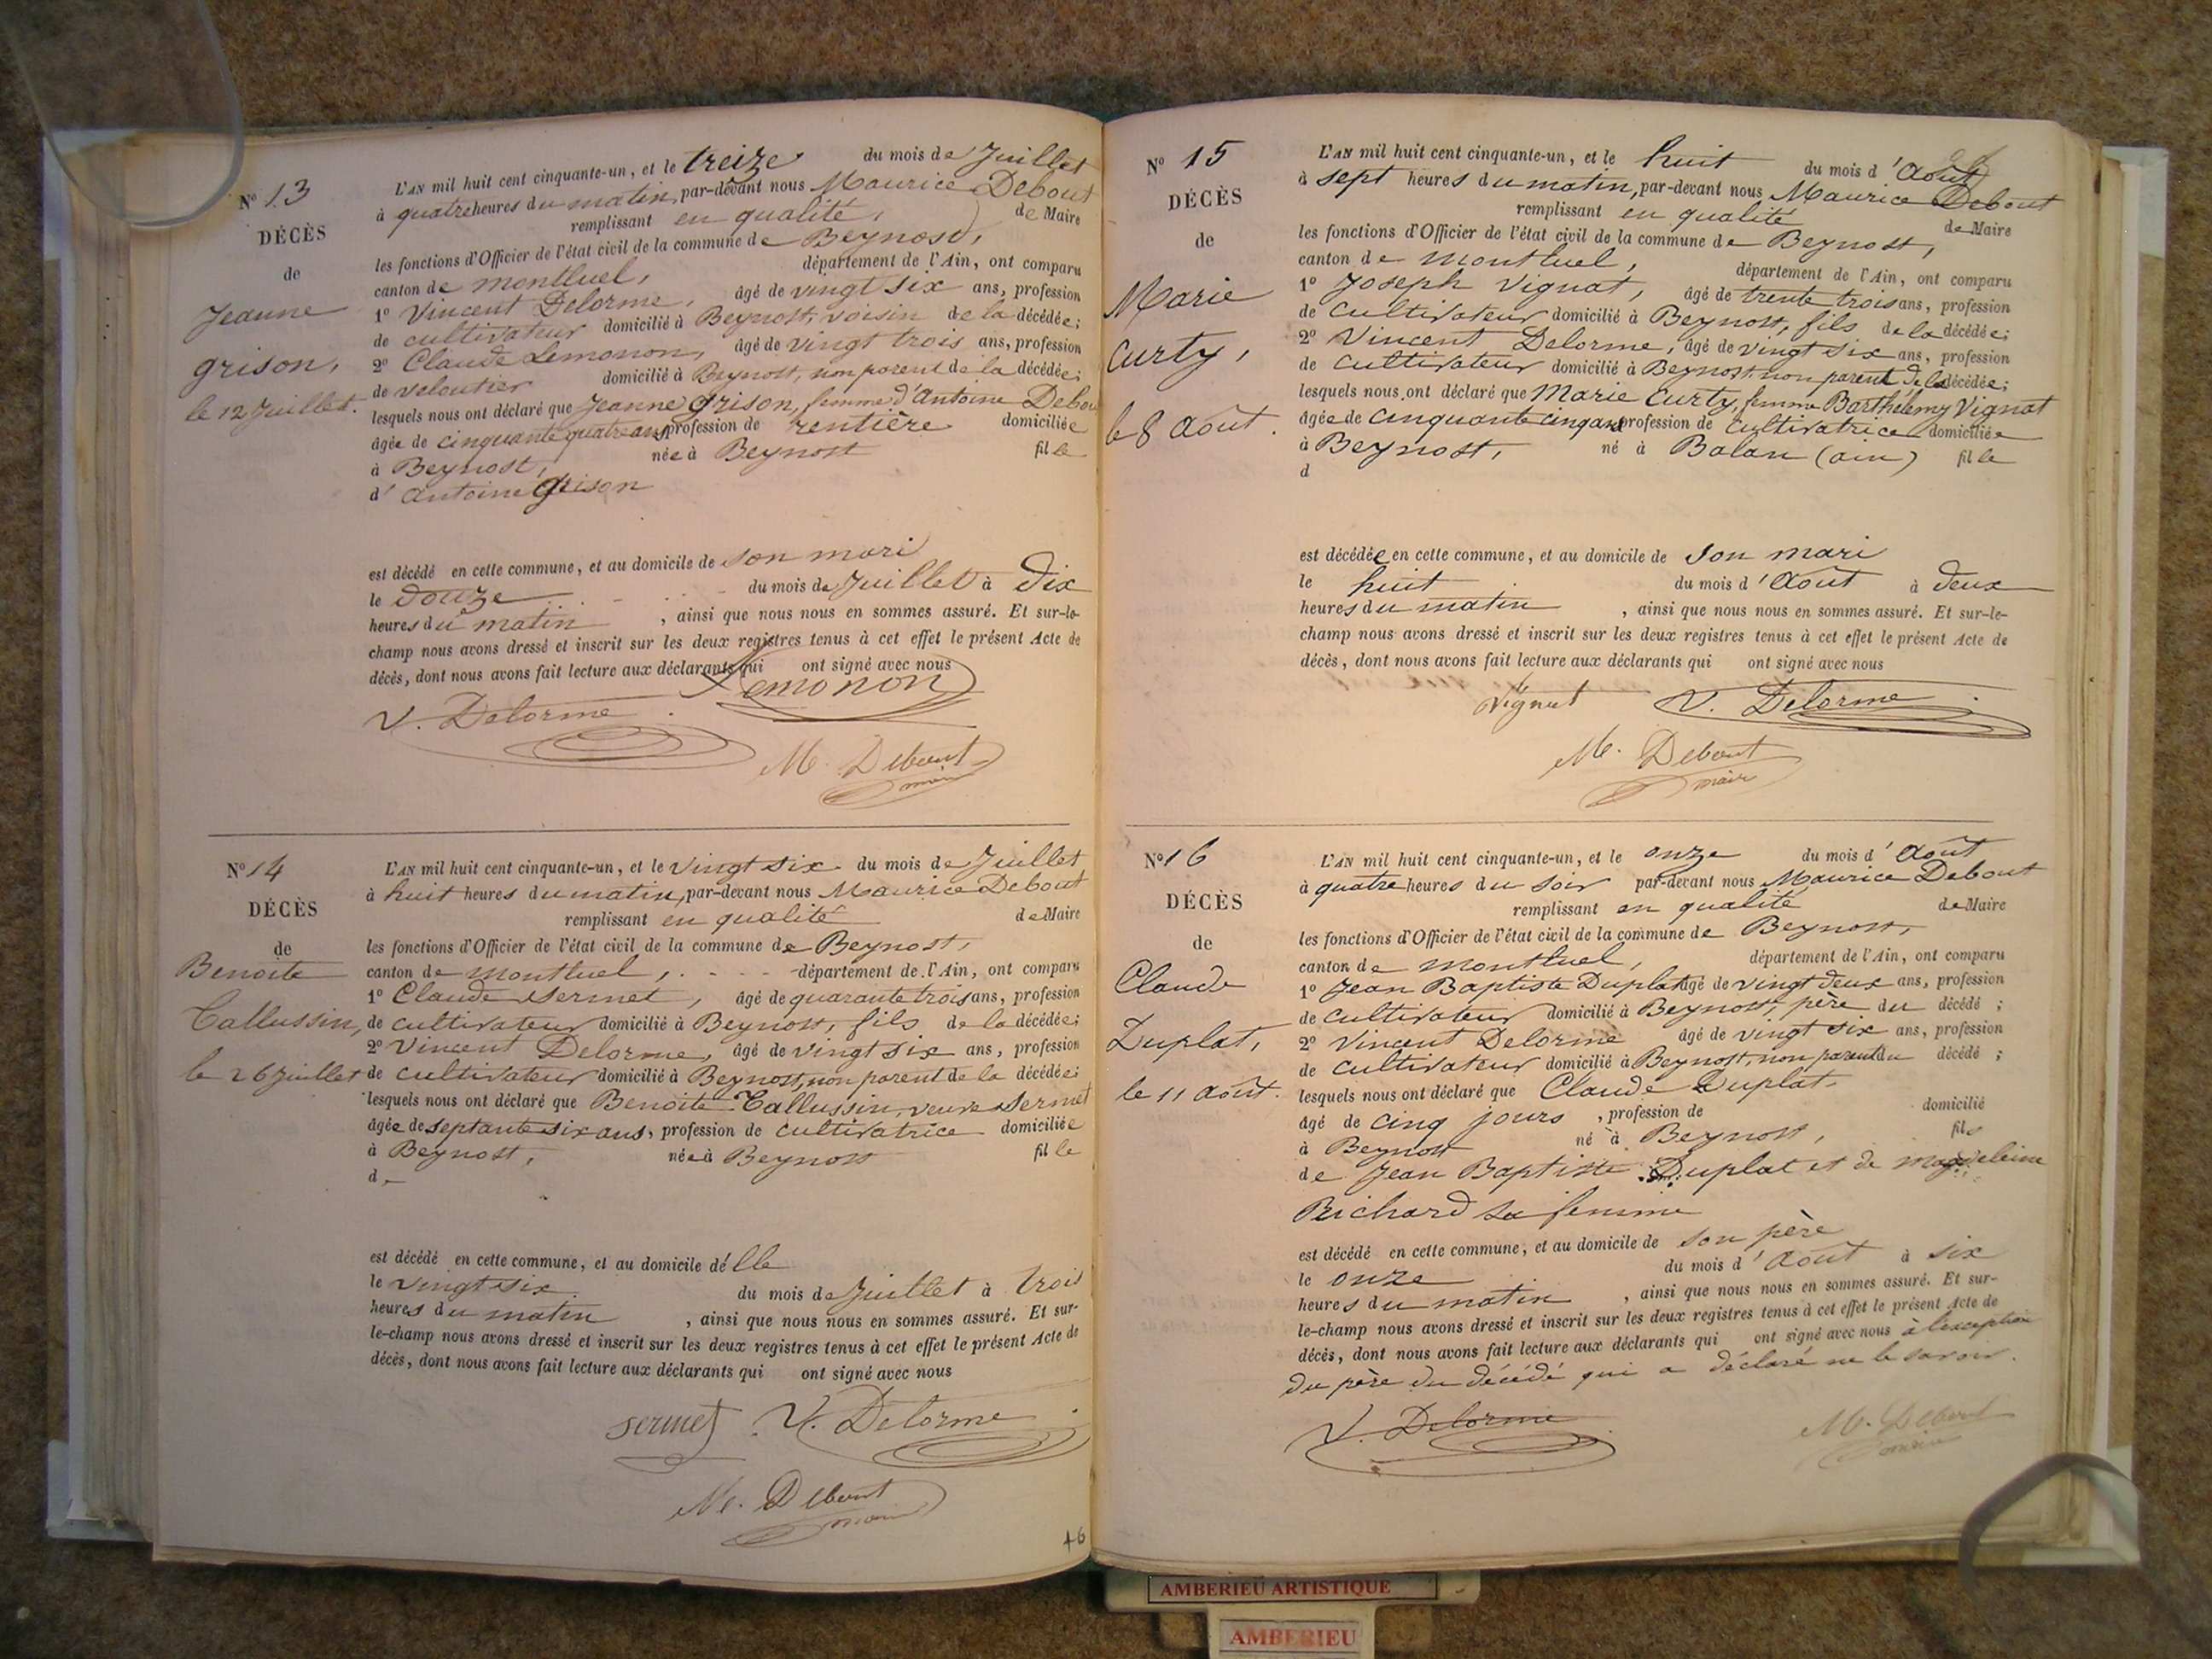 N° 13
DÉCÈS
de
Jeanne
grison,
le 12 Juillet.
L'AN mil huit cent cinquante-un, et le treize du mois de Juillet
à quatre heures du matin, par-devant nous Maurice Debout
remplissant en qualité, de Maire
les fonctions d'Officier de l'état civil de la commune de Beynost,
canton de montluel, département de l'Ain, ont comparu
1° Vincent Delorme, âgé de vingt six ans, profession
de cultivateur domicilié à Beynost, voisin de la décédée;
2° Claude Lemonon, âgé de vingt trois ans, profession
de veloutier domicilié à Beynost, non parent de la décédée;
lesquels nous ont déclaré que Jeanne grison, femme d'Antoine Debou
âgée de cinquante quatre ans, profession de rentière domiciliée
à Beynost, née à Beynost fille
d' antoine grison
est décédé en cette commune, et au domicile de son mari
le douze du mois de Juillet à dix
heures du matin, ainsi que nous nous en sommes assuré. Et sur-le-
champ nous avons dressé et inscrit sur les deux registres tenus à cet effet le présent Acte de
décès, dont nous avons fait lecture aux déclarants qui ont signé avec nous
Lemonon
V. Delorme
M. Debout
maire
N° 14
DÉCÈS
de
Benoite
Tallussin,
le 26 Juillet
L'AN mil huit cent cinquante-un, et le vingt six du mois de Juillet
à huit heures du matin, par-devant nous Maurice Debout
remplissant en qualité de Maire
les fonctions d'Officier de l'état civil de la commune de Beynost,
canton de montluel, département de l'Ain, ont comparu
1° Claude Sermet, âgé de quarante trois ans, profession
de cultivateur domicilié à Beynost, fils de la décédée;
2° Vincent Delorme, âgé de vingt six ans, profession
de cultivateur domicilié à Beynost, non parent de la décédée;
lesquels nous ont déclaré que Benoite Tallussin, veuve Sermet
âgée de septante six ans, profession de cultivatrice domiciliée
à Beynost, née à Beynost fille
de
est décédé en cette commune, et au domicile d'elle
le vingt six du mois de Juillet à trois
heures du matin, ainsi que nous nous en sommes assuré. Et sur-
le-champ nous avons dressé et inscrit sur les deux registres tenus à cet effet le présent Acte de
décès, dont nous avons fait lecture aux déclarants qui ont signé avec nous
sermet V. Delorme
M. Debout
maire
46
N° 15
DÉCÈS
de
Marie
Curty,
le 8 août.
L'AN mil huit cent cinquante-un, et le huit du mois d'Août
à sept heures du matin, par-devant nous Maurice Debout
remplissant en qualité de Maire
les fonctions d'Officier de l'état civil de la commune de Beynost,
canton de montluel, département de l'Ain, ont comparu
1° Joseph Vignat, âgé de trente trois ans, profession
de cultivateur domicilié à Beynost, fils de la décédée;
2° Vincent Delorme, âgé de vingt six ans, profession
de cultivateur domicilié à Beynost, non parent de la décédée;
lesquels nous ont déclaré que Marie Curty, femme Barthélemy Vignat
âgée de cinquante cinq ans, profession de cultivatrice domiciliée
à Beynost, né à Balan (ain) fille
d
est décédée en cette commune, et au domicile de son mari
le huit du mois d'Août à deux
heures du matin, ainsi que nous nous en sommes assuré. Et sur-le-
champ nous avons dressé et inscrit sur les deux registres tenus à cet effet le présent Acte de
décès, dont nous avons fait lecture aux déclarants qui ont signé avec nous
Vignat V. Delorme
M. Debout
maire
N° 16
DÉCÈS
de
Claude
Duplat,
le 11 août.
L'AN mil huit cent cinquante-un, et le onze du mois d'Août
à quatre heures du soir par-devant nous Maurice Debout
remplissant en qualité de Maire
les fonctions d'Officier de l'état civil de la commune de Beynost,
canton de montluel, département de l'Ain, ont comparu
1° Jean Baptiste Duplat âgé de vingt deux ans, profession
de cultivateur domicilié à Beynost, père du décédé;
2° Vincent Delorme âgé de vingt six ans, profession
de cultivateur domicilié à Beynost, non parent du décédé;
lesquels nous ont déclaré que Claude Duplat
âgé de cinq jours, profession de domicilié
à Beynost né à Beynost, fils
de Jean Baptiste Duplat et de magdeleine
Richard sa femme
est décédé en cette commune, et au domicile de son père
le onze du mois d'Août à six
heures du matin, ainsi que nous nous en sommes assuré. Et sur-
le-champ nous avons dressé et inscrit sur les deux registres tenus à cet effet le présent Acte de
décès, dont nous avons fait lecture aux déclarants qui ont signé avec nous à l'exception
du père du décédé qui a déclaré ne le savoir.
V. Delorme
M. Debout
maire
AMBERIEU ARTISTIQUE
AMBERIEU